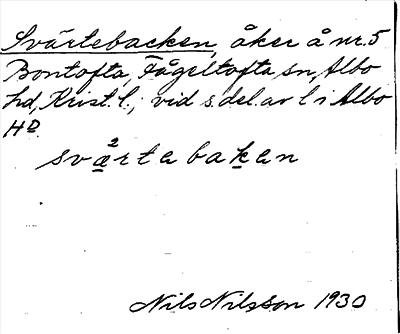 Svärtebacken, åker å nr. 5
Bontofta, Fågeltofta sn, Albo
hd, Krist. l.; vid s. del. av l i Albo
HD.
svä²rtebaken
Nils Nilsson 1930